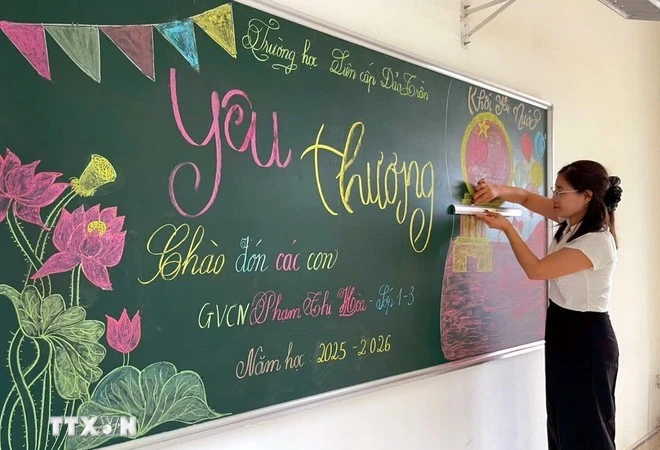 Trường học Liên cấp Đảo Trần
Khối Yêu Nước
Yêu thương
Chào đón các con
GVCN Phạm Thị Hòa - Lớp 1-3
Năm học: 2025-2026
TTXVN